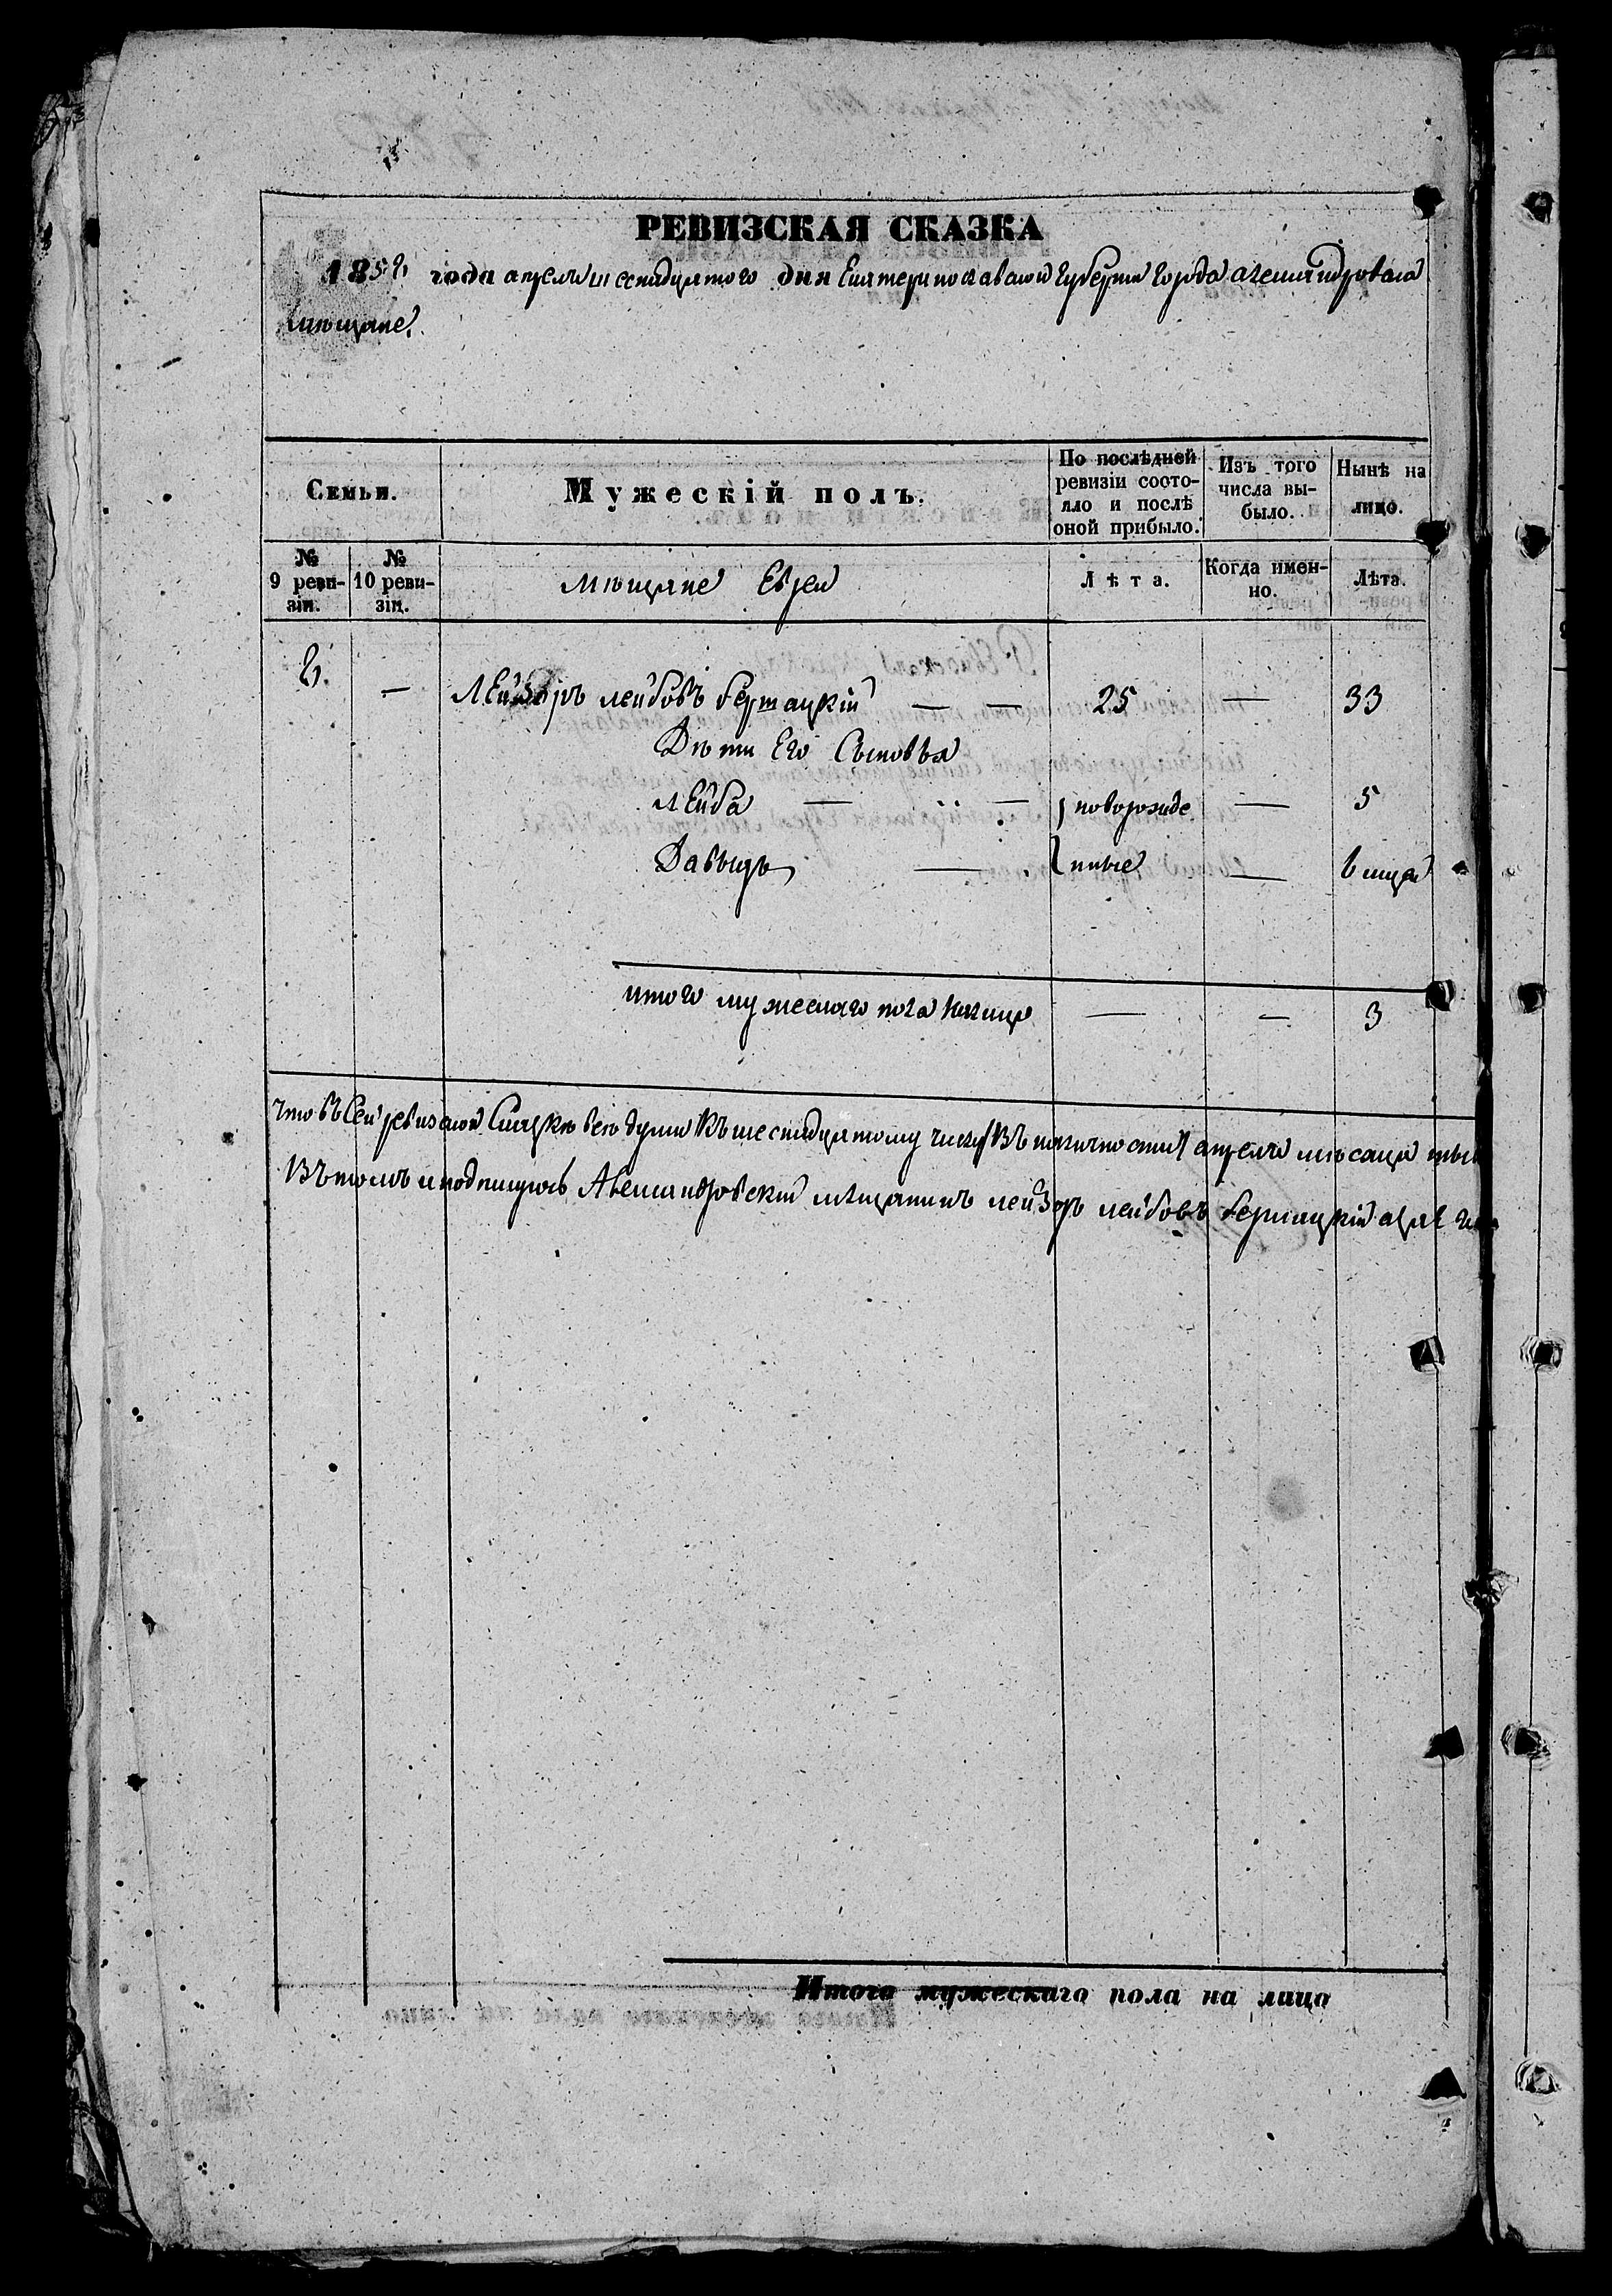 РЕВИЗСКАЯ СКАЗКА
1858 года апреля шеснадцятого дня Екатеринославской Губернии Города Александровска
мѣщане.
Семьи.
Мужескій полъ.
По послѣдней ревизіи состояло и послѣ оной прибыло.
Изъ того числа выбыло.
Нынѣ на лицо.
№ 9 ревизіи.
№ 10 ревизіи.
мѣщане Евреи
Лѣта.
Когда именно.
Лѣта.
— Лейзоръ лейбовъ — — 25 — 33
Дѣти Его Сыновья
Лейба — — новорожде — 5
Давыдъ — нные —
итого мужескаго пола налицо — — 3
что въ Сей ревизской Скаскѣ всѣ души Къ шеснадцятому числу Въ наличности апреля мѣсаца
Въ томъ и подпишуюсь Александровскій мѣщанинъ лейзоръ лейбовъ
Итого мужескаго пола на лицо